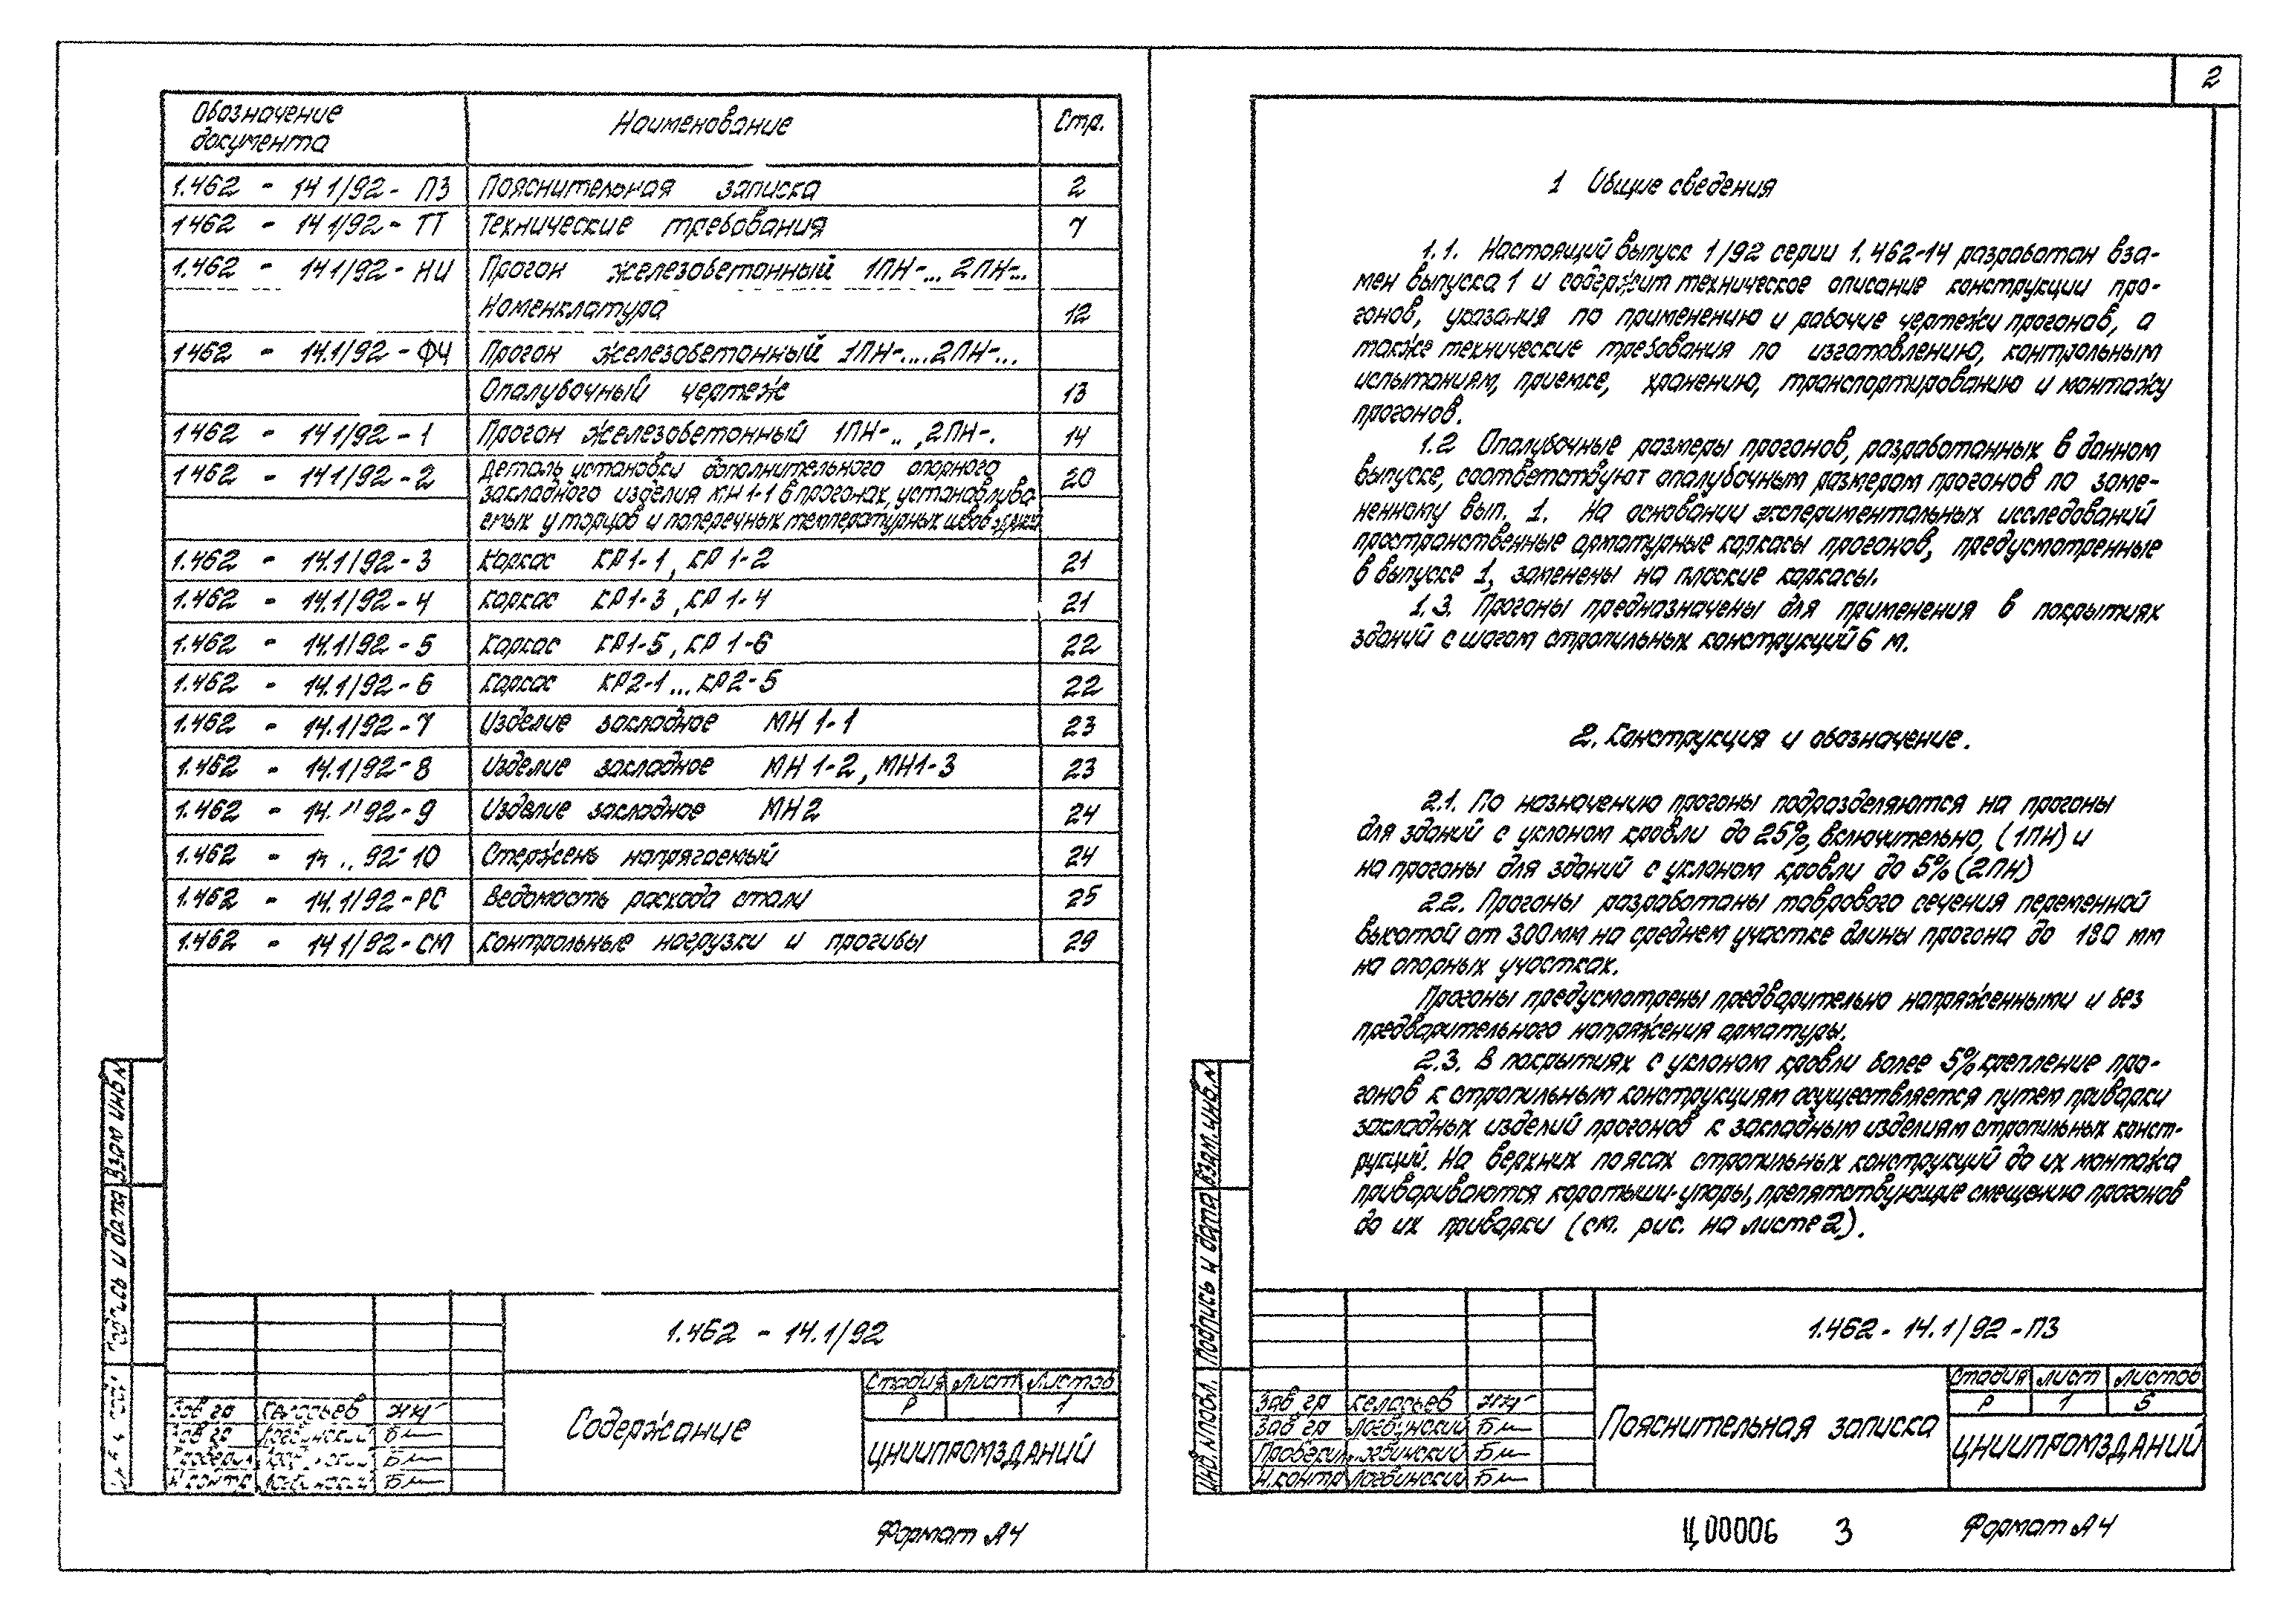 Обозначение документа Наименование Стр.
1.462 - 14 1/92 - ПЗ Пояснительная записка 2
1 462 - 14 1/92 - ТТ Технические требования 7
1.462 - 14 1/92 - НИ Прогон железобетонный 1ПН-... 2ПН-..
Номенклатура 12
1 462 - 14.1/92 - ФЧ Прогон железобетонный 1ПН-....2ПН-...
Опалубочный чертеж 13
1 462 - 14 1/92 - 1 Прогон железобетонный 1ПН-.. ,2ПН-. 14
1 462 - 14 1/92 - 2 Деталь установки дополнительного опорного 20
закладного изделия МН 1-1 в прогонах, устанавлива-
емых у торцов и поперечных температурных швов зданий
1.462 - 14.1/92 - 3 Каркас КР1-1, КР 1-2 21
1.462 - 14.1/92 - 4 Каркас КР1-3, КР 1-4 21
1.462 - 14.1/92 - 5 Каркас КР1-5, КР 1-6 22
1.462 - 14.1/92 - 6 Каркас КР2-1...КР2-5 22
1.462 - 14.1/92 - 7 Изделие закладное МН 1-1 23
1.462 - 14.1/92 - 8 Изделие закладное МН 1-2, МН1-3 23
1.462 - 14. 92 - 9 Изделие закладное МН2 24
1.462 - 14 .. 92 - 10 Стержень напрягаемый 24
1.462 - 14.1/92 - РС Ведомость расхода стали 25
1.462 - 14 1/92 - СМ Контрольные нагрузки и прогибы 29
Взам инв N
Подпись и дата
1.462 - 14.1/92
Содержание
Стадия Лист Листов
Р 1
ЦНИИПРОМЗДАНИЙ
Зав гр
Зав гр
Н контр
Формат А4
2
1 Общие сведения
1.1. Настоящий выпуск 1/92 серии 1.462-14 разработан вза-
мен выпуска 1 и содержит техническое описание конструкции про-
гонов, указания по применению и рабочие чертежи прогонов, а
также технические требования по изготовлению, контрольным
испытаниям, приемке, хранению, транспортированию и монтажу
прогонов.
1.2 Опалубочные размеры прогонов, разработанных в данном
выпуске, соответствуют опалубочным размерам прогонов по заме-
ненному вып. 1. На основании экспериментальных исследований
пространственные арматурные каркасы прогонов, предусмотренные
в выпуске 1, заменены на плоские каркасы.
1.3. Прогоны предназначены для применения в покрытиях
зданий с шагом стропильных конструкций 6 м.
2. Конструкция и обозначение.
2.1. По назначению прогоны подразделяются на прогоны
для зданий с уклоном кровли до 25%, включительно, (1ПН) и
на прогоны для зданий с уклоном кровли до 5% (2ПН)
2.2. Прогоны разработаны таврового сечения переменной
высотой от 300 мм на среднем участке длины прогона до 180 мм
на опорных участках.
Прогоны предусмотрены предварительно напряженными и без
предварительного напряжения арматуры.
2.3. В покрытиях с уклоном кровли более 5% крепление про-
гонов к стропильным конструкциям осуществляется путем приварки
закладных изделий прогонов к закладным изделиям стропильных конст-
рукций. На верхних поясах стропильных конструкций до их монтажа
привариваются коротыши-упоры, препятствующие смещению прогонов
до их приварки (см. рис. на листе 2).
Взам. инв. N
Подпись и дата
Инв. N подл.
1.462 - 14.1/92 - ПЗ
Пояснительная записка
Стадия Лист Листов
Р 1 5
ЦНИИПРОМЗДАНИЙ
Зав гр
Зав гр Логвинский
Проверил
Н.контр Логвинский
Ц00006 3
Формат А4